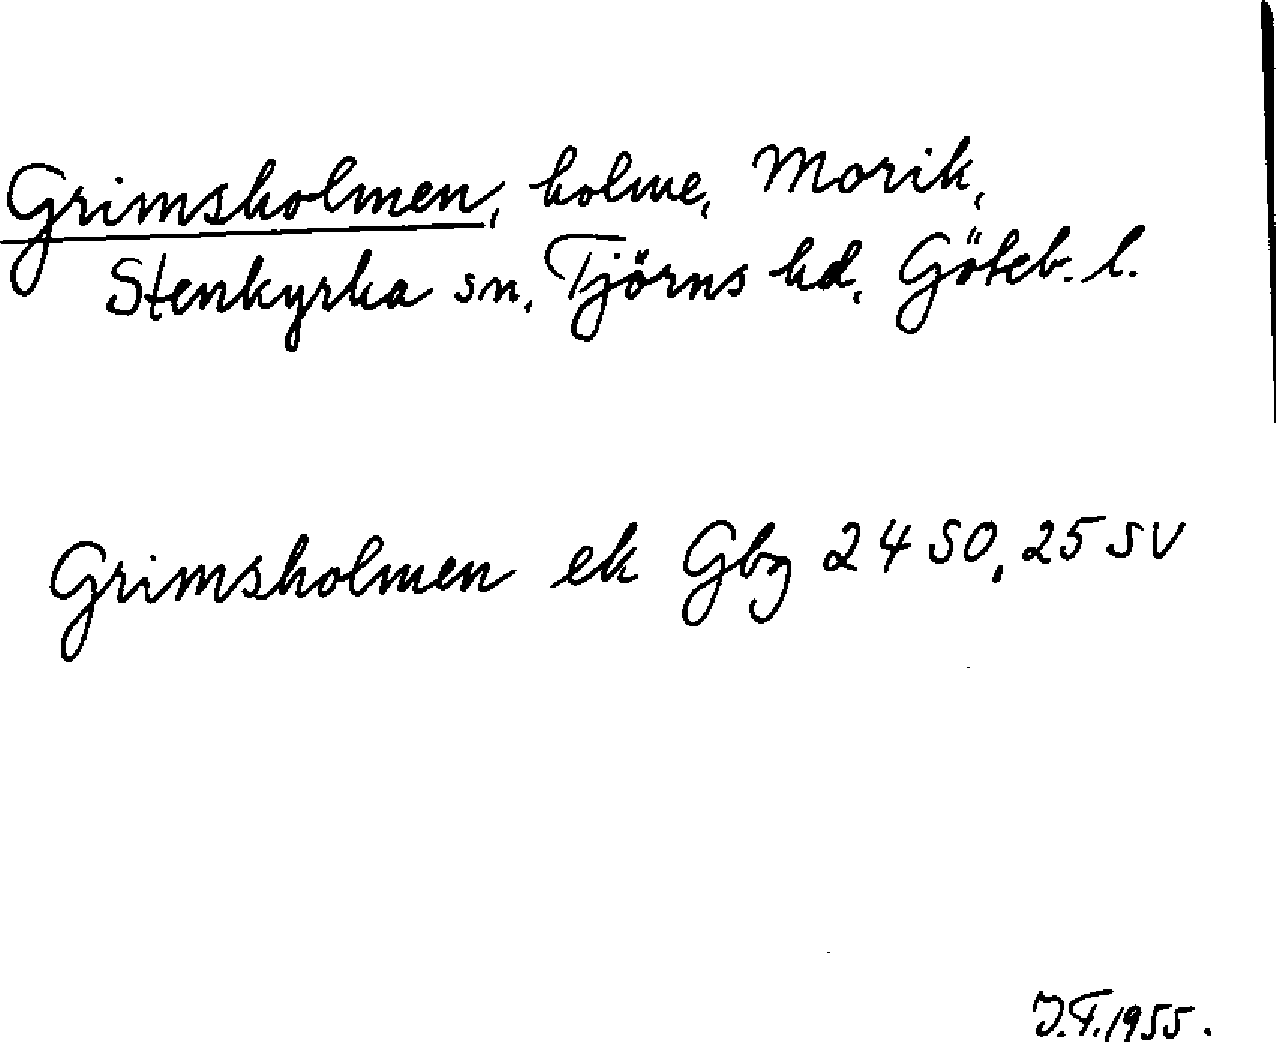 Grimsholmen, holme, Morik,
Stenkyrka sn, Tjörns hd, Göteb. l.
Grimsholmen ek Gbg 24 SO, 25 SV
J.F. 1955.